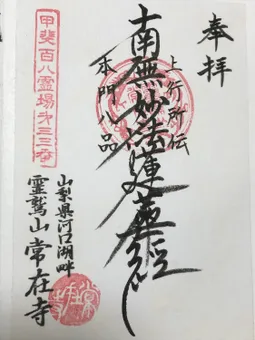 奉拝
上行所伝
南無妙法蓮華経
本門八品
甲斐百八霊場第三三番
山梨県河口湖畔
霊鷲山常在寺